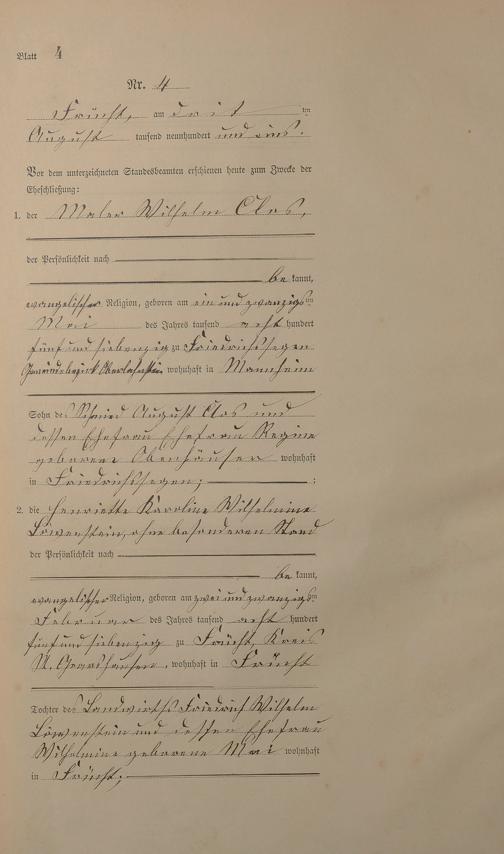 Blatt 4
Nr. 4
Frücht, am drit ten
August tausend neunhundert und eins.
Vor dem unterzeichneten Standesbeamten erschienen heute zum Zwecke der
Eheschließung:
1. der Maler Wilhelm Clos,
der Persönlichkeit nach
be kannt,
evangelischer Religion, geboren am ein und zwanzigs ten
Mai des Jahres tausend acht hundert
fünf und siebenzig zu Friedrichssegen
Gemeindebezirk Oberlahnstein, wohnhaft in Mannheim
Sohn des Schmied August Clos und
dessen Ehefrau Ehefrau Regine
geborene wohnhaft
in Friedrichssegen; ;
2. die Henriette Karoline Wilhelmine
Löwenstein, ohne besonderen Stand
der Persönlichkeit nach
be kannt,
evangelischer Religion, geboren am zwei und zwanzigs ten
Februar des Jahres tausend acht hundert
fünf und siebenzig zu Frücht, Kreis
St. Goarshausen, wohnhaft in Frücht
Tochter des Landwirths Friedrich Wilhelm
Löwenstein und dessen Ehefrau
Wilhelmine geborene Mai wohnhaft
in Frücht;